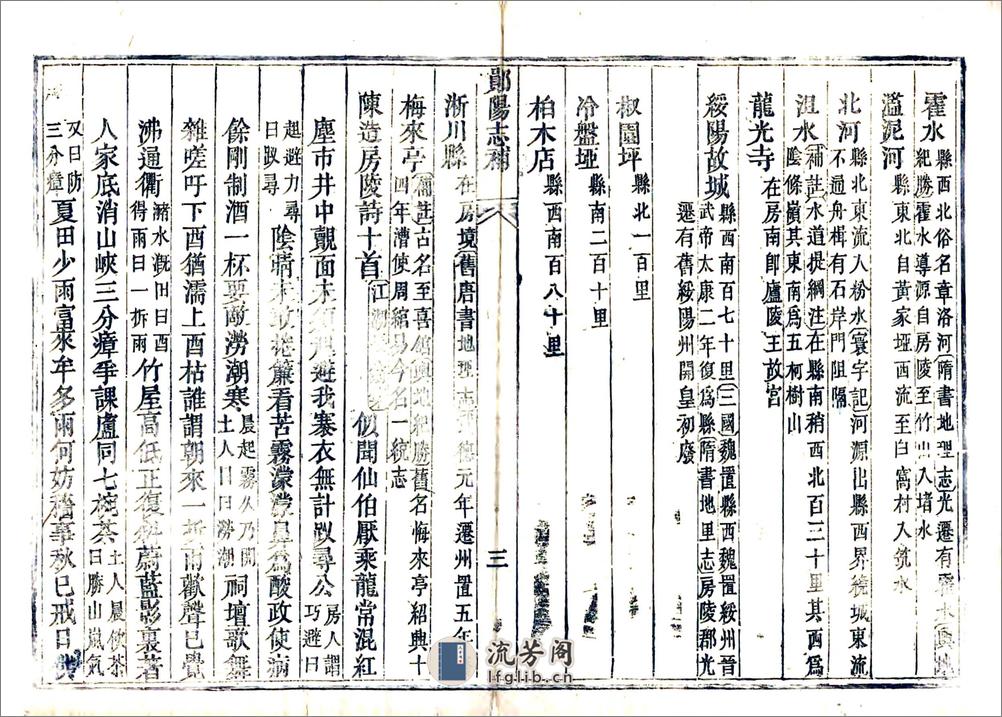 霍水縣西北俗名章洛河隋書地理志光遷有霍水輿地
紀勝霍水導源自房陵至竹山入堵水
瀊泥河縣東北自黃家埡西流至白窩村入筑水
北河縣北東流入粉水寰宇記河源出縣西界繞城東流
不通舟楫有石岸門阻隔
沮水補註水道提綱注在縣南稍西北百二十里其西爲
陰條嶺其東南爲五柯樹山
龍光寺在房南卽廬陵王故宮
綏陽故城縣西南百七十里三國魏置縣西魏置綏州晉
武帝太康二年復爲縣隋書地里志房陵郡光
遷有舊綏陽州開皇初廢
椒園坪縣北一百里
冷盤埡縣南二百十里
柏木店縣西南百八十里
鄖陽志補 三
淅川縣在房境舊唐書地理志武德元年遷州置五年
梅來亭補註古名至喜館輿地紀勝舊名悔來亭紹興十
四年漕使周綰易今名一統志
陳造房陵詩十首江湖 仮聞仙伯厭乘龍常混紅
塵市井中覿面未須相避我褰衣無計趿尋公房人謂巧避曰
起避力尋曰趿尋陰晴未敢捲簾看苦霧濛濛鼻爲酸政使病
餘剛制酒一杯要敵澇潮寒晨起霧久乃開土人目曰澇潮祠壇歌舞
雜嗟吁下酉猶濡上酉枯誰謂朝來一拆雨歡聲已覺
沸通衢瀦水溉田曰酉得雨曰一拆雨竹屋高低正復斜蔚藍影裏著
人家底消山峽三分瘴爭課盧同七椀茶土人晨飲茶曰勝山嵐氣
又曰防三分瘴夏田少雨富來牟多雨何妨穡事秋已戒日
流芳阁
lfglib.cn